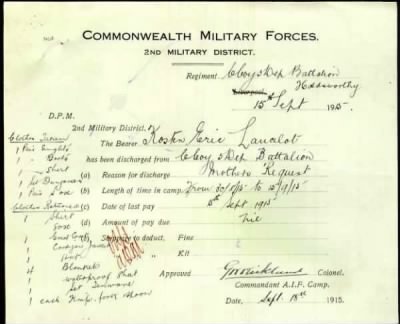 COMMONWEALTH MILITARY FORCES.
2ND MILITARY DISTRICT.
Regiment, C Coy 3 Dep Battalion
Holsworthy
Liverpool,
15th Sept 1915.
D. P. M.
2nd Military District.
The Bearer Eric Lancelot
has been discharged from C Coy 3 Dep Battalion
(a) Reason for discharge Mothers Request
(b) Length of time in camp, From 30/8/15 to 15/9/15
(c) Date of last pay 15th Sept 1915
(d) Amount of pay due Nil
(e) Stoppage to deduct, Fine
Kit
Approved Colonel.
Commandant A.I.F. Camp.
Date, Sept. 18th 1915.
1 Pair
1 " Boots
1 " Shirt
1 Set Dungarees
1 Pair Sox
1 Shirt
Sox
1 Hat
4 Blankets
1 waterproof Sheet
1 Set
1 each Knife, fork, Spoon